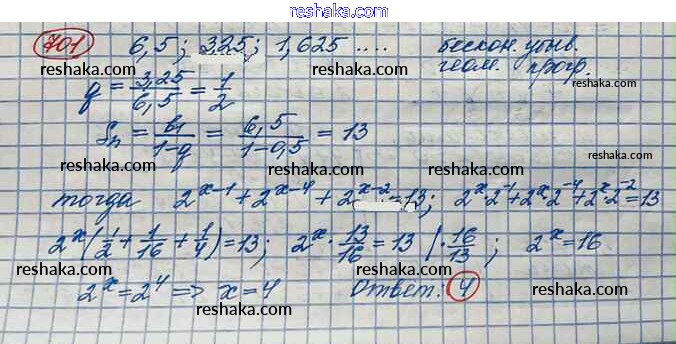 www.reshaka.com
701 6,5; 3,25; 1,625 .... бескон. убыв.
reshaka.com reshaka.com геом. прогр.
q = 3,25/6,5 = 1/2 reshaka.com
Sn = b1/(1-q) = 6,5/(1-0,5) = 13
reshaka.com reshaka.com
тогда 2^(x-1) + 2^(x-4) + 2^(x-2) = 13; 2^x·2^(-1) + 2^x·2^(-4) + 2^x·2^(-2) = 13
reshaka.com reshaka.com
2^x(1/2 + 1/16 + 1/4) = 13; 2^x · 13/16 = 13 | · 16/13; 2^x = 16
reshaka.com reshaka.com
2^x = 2^4 => x = 4 Ответ: 4 reshaka.com
reshaka.com reshaka.com